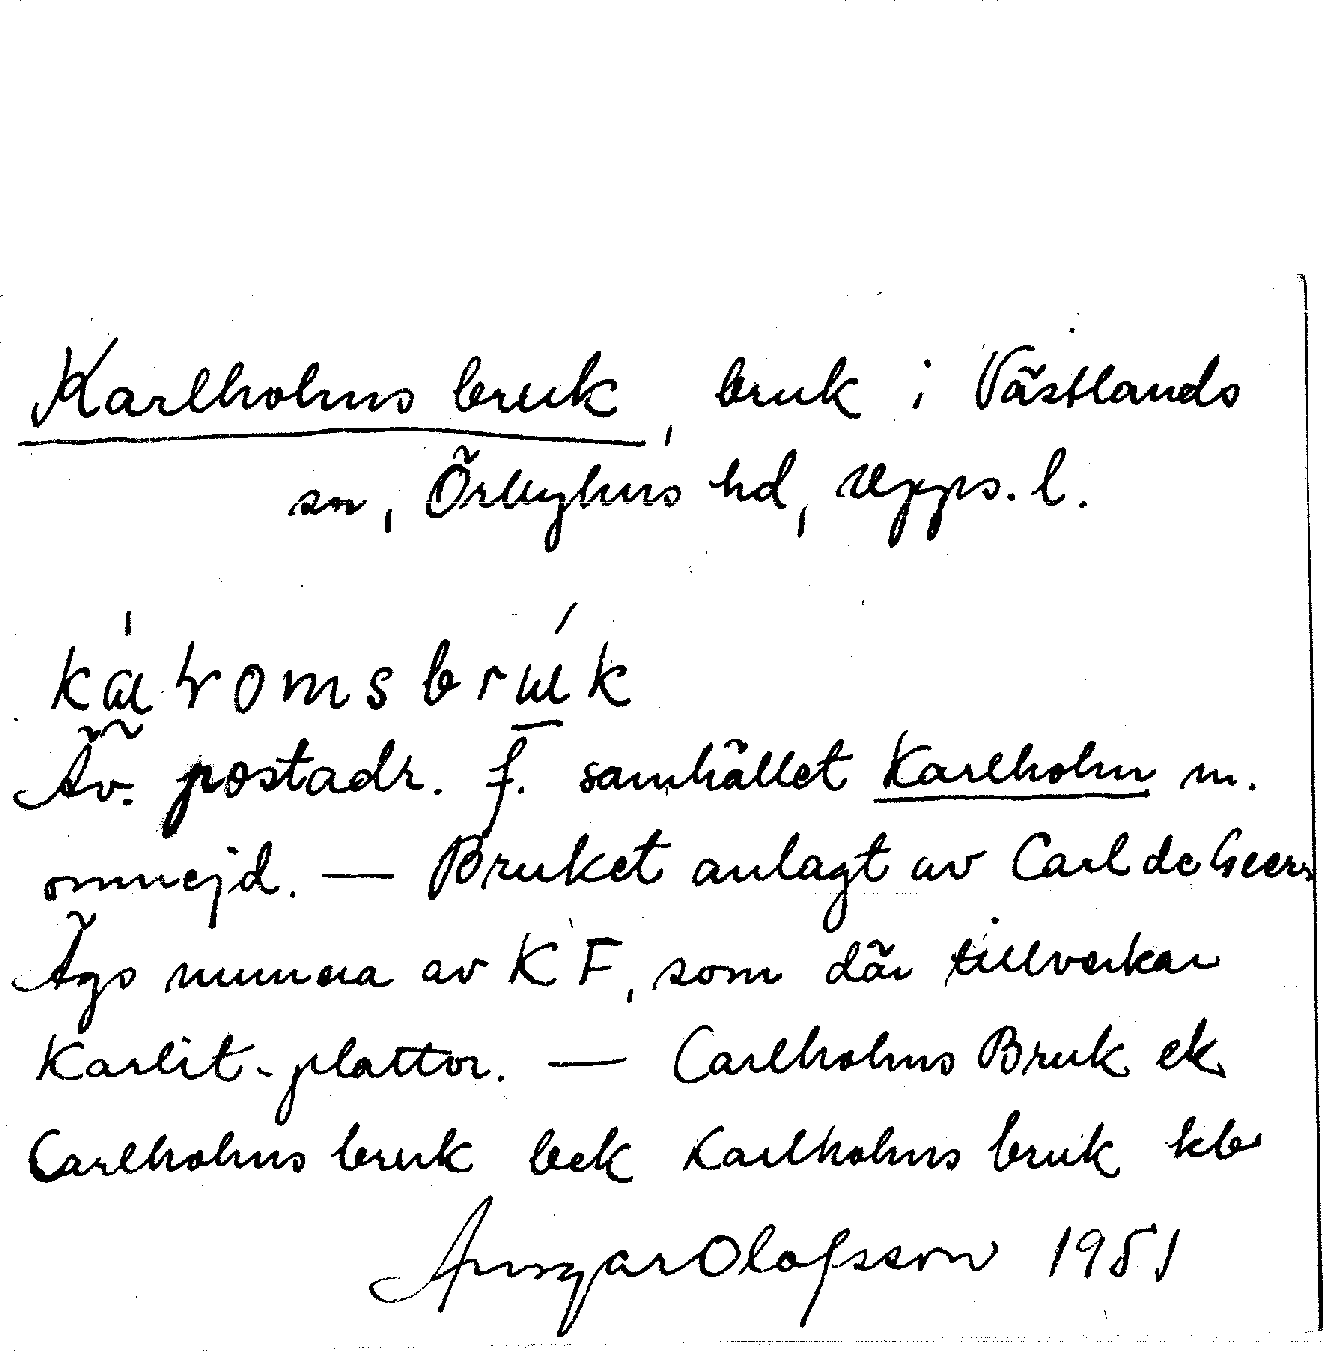 Karlholms bruk, bruk i Västlands
sn, Örbyhus hd, Upps. l.
Äv. postadr. f. samhället Karlholm m.
omnejd. — Bruket anlagt av Carl de Geer.
Ägs numera av KF, som där tillverkar
Karlit-plattor. — Carlholms Bruk ek
Carlholms bruk bek Karlholms bruk kb
Ansgar Olofsson 1951